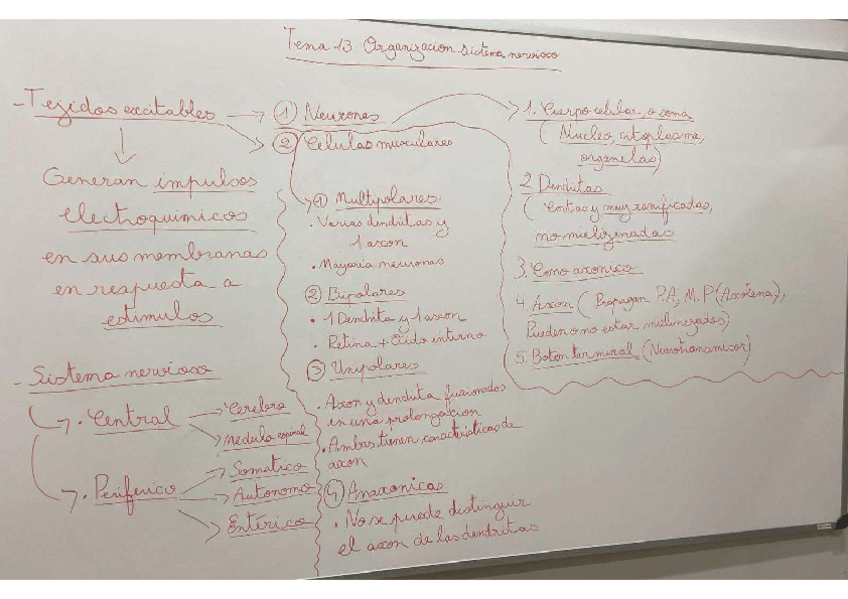 Tema 13. Organizacion sistema nervioso
- Tejidos excitables
Generan impulsos
electroquimicos
en sus membranas
en respuesta a
estimulos
- Sistema nervioso
• Central
Cerebro
Medula espinal
• Periferico
Somatico
Autonomo
Entérico
① Neurones
② Celulas musculares
① Multipolares:
• Varias dendritas y
1 axon
• Mayoria neuronas
② Bipolares
• 1 Dendrita y 1 axon
• Retina + Oido interno
③ Unipolares
• Axon y dendrita fusionados
en una prolongacion
• Ambas tienen caracteristicas de
axon
④ Anaxonicas
• No se puede distinguir
el axon de las dendritas
1. Cuerpo celular, o soma
(Nucleo, citoplasma,
organelas)
2. Dendritas
(Cortas y muy ramificadas,
no mielinizadas)
3. Cono axonico
4. Axon (Propagan P.A, M.P (Axolema),
Pueden o no estar mielinizadas)
5. Boton terminal (Neurotransmisor)